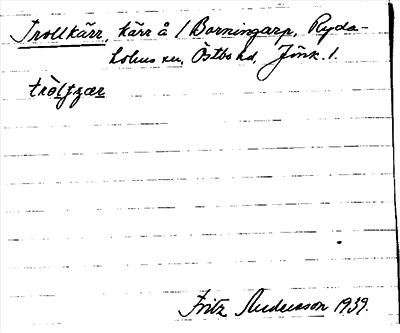 Trollkärr, kärr å 1 Borningarp, Ryda-
holms sn, Östbo hd, Jönk. l.
tròlʃær
Fritz Andersson 1939.